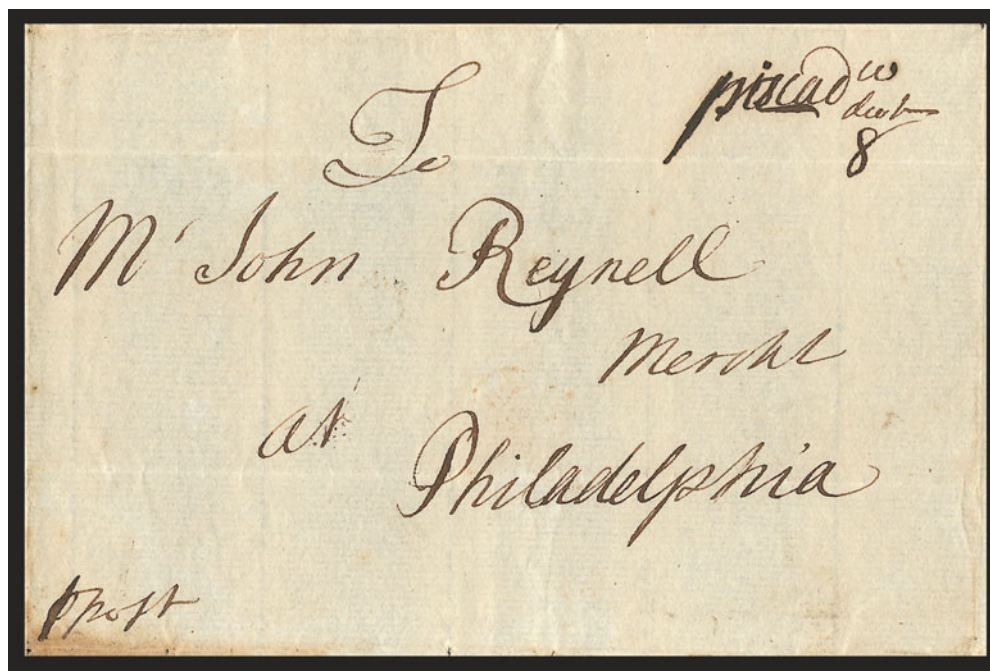 piscad
dwt
8
To
Mr John Reynell
Mercht
at
Philadelphia
⅌ post